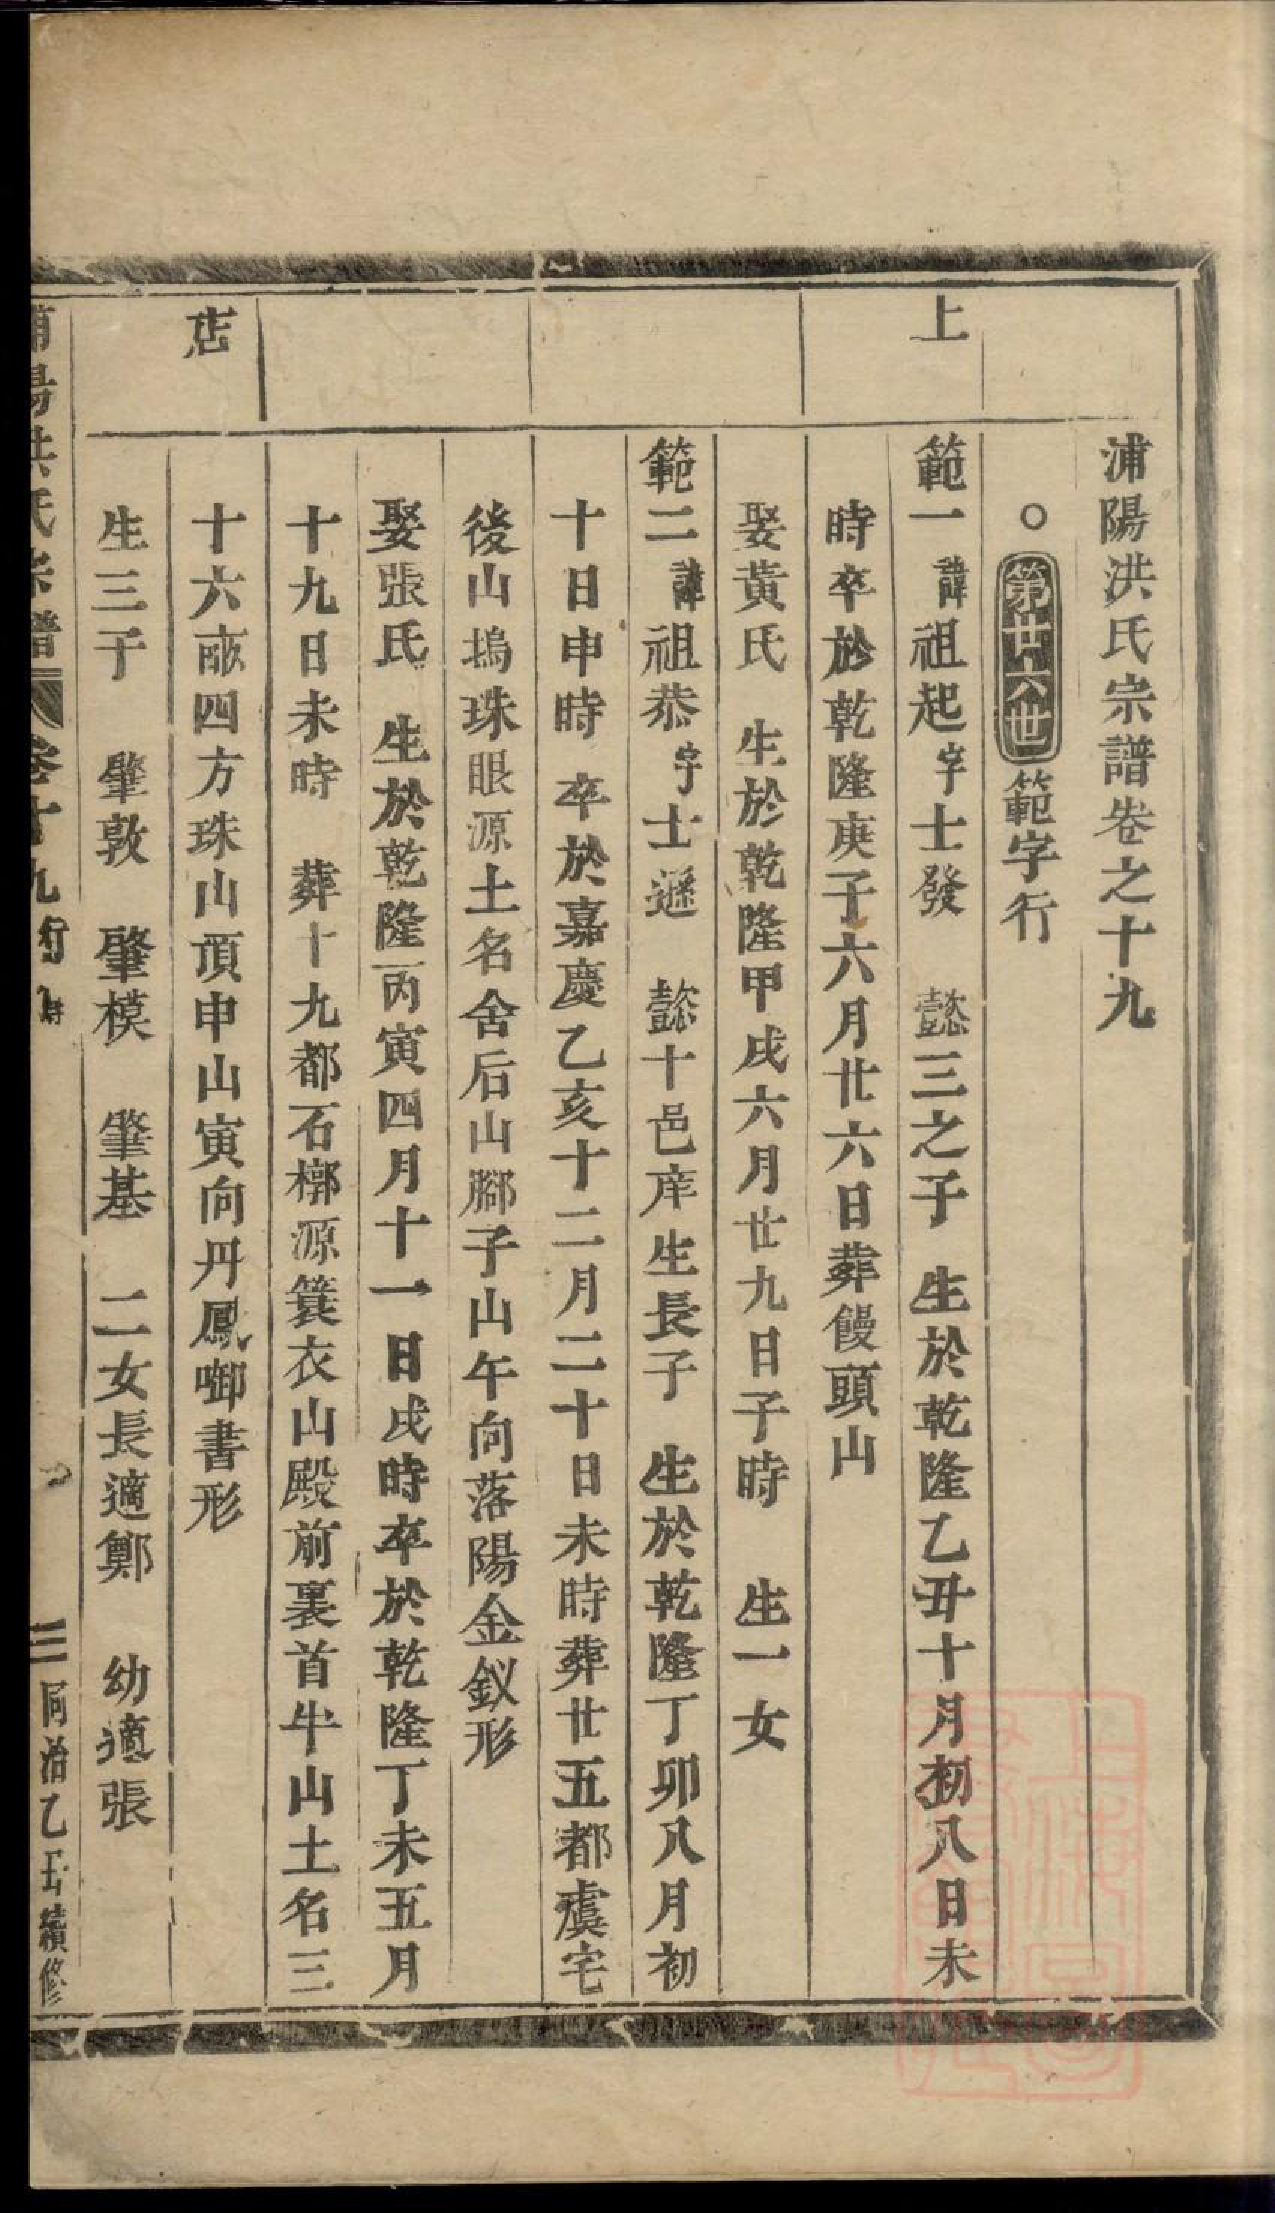 浦陽洪氏宗譜卷之十九
○第廿六世範字行
上
範一諱祖起字士發 懿三之子 生於乾隆乙丑十月初八日未
時卒於乾隆庚子六月廿六日葬饅頭山
娶黃氏 生於乾隆甲戌六月廿九日子時 生一女
範二諱祖恭字士遜 懿十邑庠生長子 生於乾隆丁卯八月初
十日申時 卒於嘉慶乙亥十二月二十日未時葬廿五都虞宅
後山塢珠眼源土名舍后山腳子山午向落陽金釵形
娶張氏 生於乾隆丙寅四月十一日戌時卒於乾隆丁未五月
十九日未時 葬十九都石槨源簑衣山殿前裏首牛山土名三
店
十六畝四方珠山頂申山寅向丹鳳啣書形
生三子 肇敦 肇模 肇基 二女長適鄭 幼適張
浦陽洪氏宗譜 卷十九行傳 同治乙丑續修